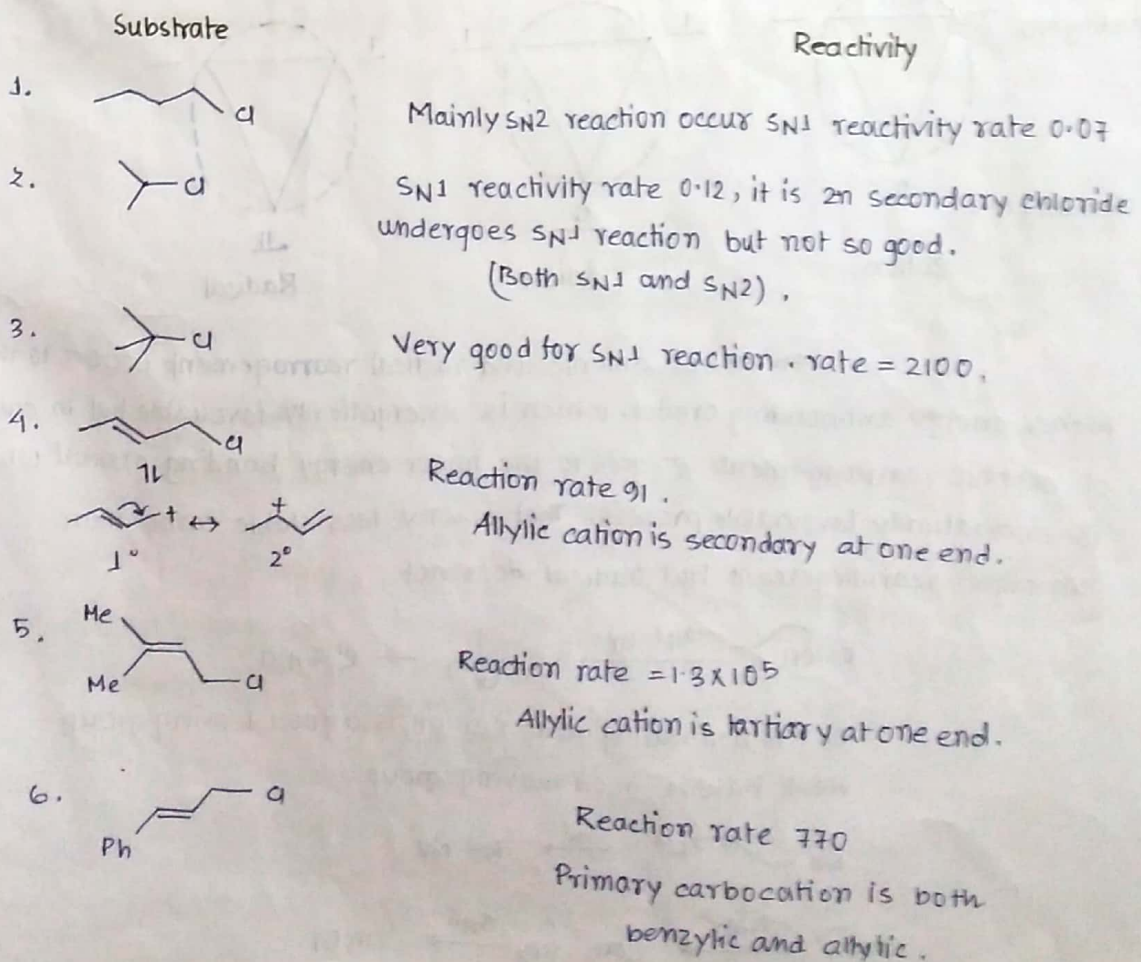 Substrate
Reactivity
1.
Cl
Mainly SN2 reaction occur SN1 reactivity rate 0.07
2.
Cl
SN1 reactivity rate 0.12, it is an secondary chloride
undergoes SN1 reaction but not so good.
(Both SN1 and SN2).
3.
Cl
Very good for SN1 reaction. rate = 2100.
4.
Cl
Reaction rate 91.
+ ↔ +
Allylic cation is secondary at one end.
1° 2°
5.
Me
Me
Cl
Reaction rate = 1.3 x 10⁵
Allylic cation is tartiary at one end.
6.
Cl
Ph
Reaction rate 770
Primary carbocation is both
benzylic and allylic.